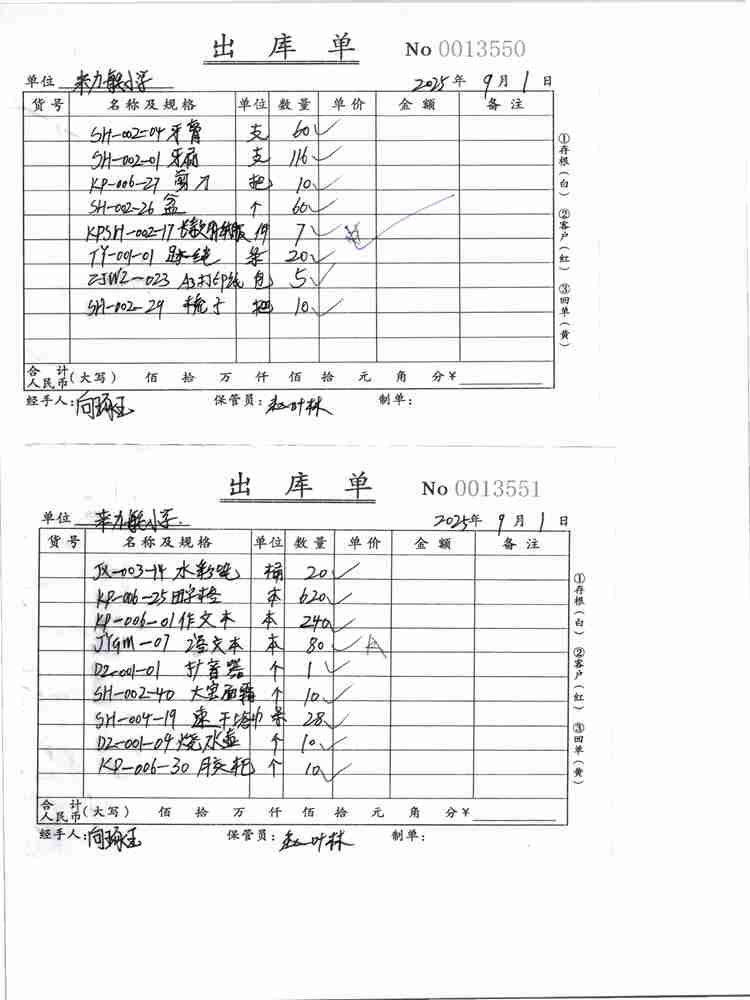 出 库 单 No 0013550
单位 来力能小学 2025年 9月 1 日
货号 名称及规格 单位 数量 单价 金额 备注
SH-002-04 牙膏 支 60
SH-002-01 牙刷 支 116
KP-006-27 剪刀 把 10
SH-002-26 盆 个 60
KPSH-002-17 件 7
TY-001-01 跳绳 条 20
ZJWZ-023 A3打印纸 包 5
SH-002-29 梳子 把 10
合计人民币(大写) 佰 拾 万 仟 佰 拾 元 角 分¥
经手人: 保管员: 赵叶林 制单:
①存根(白) ②客户(红) ③回单(黄)
出 库 单 No 0013551
单位 来力能小学 2025年 9月 1 日
货号 名称及规格 单位 数量 单价 金额 备注
JX-003-14 水彩笔 桶 20
KP-006-25 田字格 本 620
KP-006-01 作文本 本 240
JYGM-07 语文本 本 80
DZ-001-01 扩音器 个 1
SH-002-40 大宝面霜 个 10
SH-004-19 速干毛巾 条 28
DZ-001-09 烧水壶 个 10
KP-006-30 胶粑 个 10
合计人民币(大写) 佰 拾 万 仟 佰 拾 元 角 分¥
经手人: 保管员: 赵叶林 制单:
①存根(白) ②客户(红) ③回单(黄)